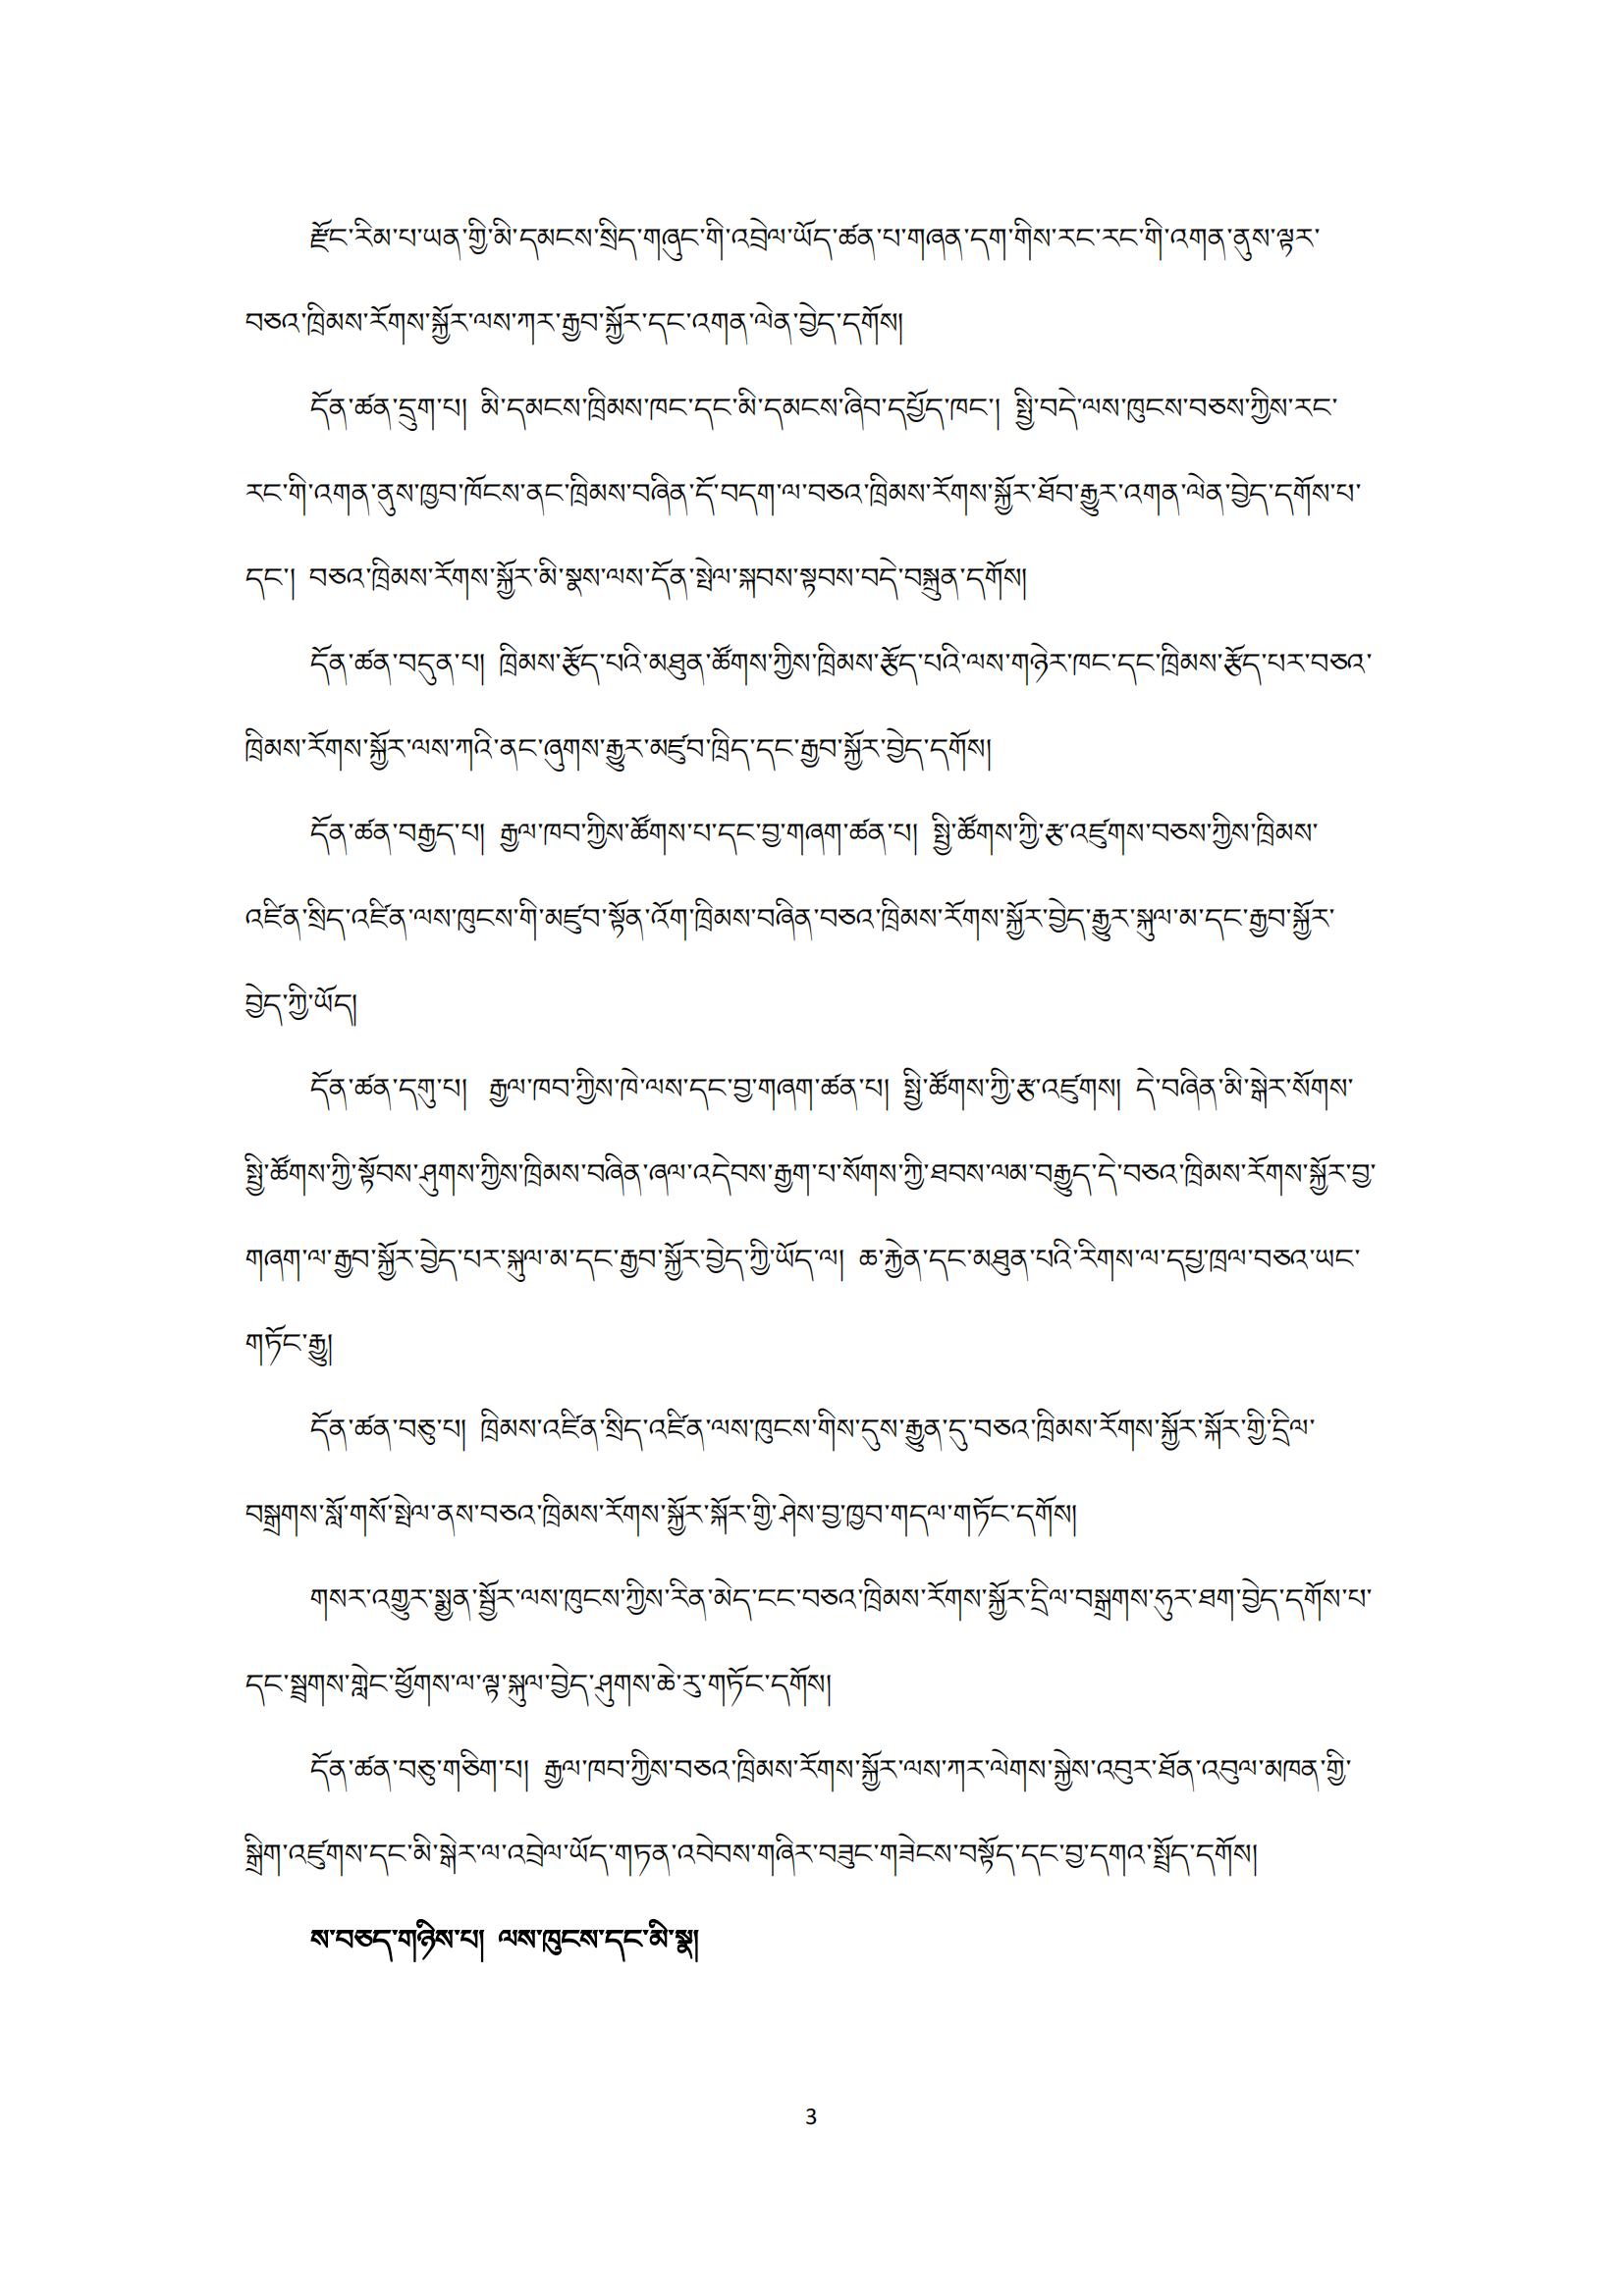 རྫོང་རིམ་པ་ཡན་གྱི་མི་དམངས་སྲིད་གཞུང་གི་འབྲེལ་ཡོད་ཚན་པ་གཞན་དག་གིས་རང་རང་གི་འགན་ནུས་ལྟར་
བཅའ་ཁྲིམས་རོགས་སྐྱོར་ལས་ཀར་རྒྱབ་སྐྱོར་དང་འགན་ལེན་བྱེད་དགོས།
དོན་ཚན་དྲུག་པ། མི་དམངས་ཁྲིམས་ཁང་དང་མི་དམངས་ཞིབ་དཔྱོད་ཁང་། སྤྱི་བདེ་ལས་ཁུངས་བཅས་ཀྱིས་རང་
རང་གི་འགན་ནུས་ཁྱབ་ཁོངས་ནང་ཁྲིམས་བཞིན་དོ་བདག་ལ་བཅའ་ཁྲིམས་རོགས་སྐྱོར་ཐོབ་རྒྱུར་འགན་ལེན་བྱེད་དགོས་པ་
དང་། བཅའ་ཁྲིམས་རོགས་སྐྱོར་མི་སྣས་ལས་དོན་སྤེལ་སྐབས་སྟབས་བདེ་བསྐྲུན་དགོས།
དོན་ཚན་བདུན་པ། ཁྲིམས་རྩོད་པའི་མཐུན་ཚོགས་ཀྱིས་ཁྲིམས་རྩོད་པའི་ལས་གཉེར་ཁང་དང་ཁྲིམས་རྩོད་པར་བཅའ་
ཁྲིམས་རོགས་སྐྱོར་ལས་ཀའི་ནང་ཞུགས་རྒྱུར་མཛུབ་ཁྲིད་དང་རྒྱབ་སྐྱོར་བྱེད་དགོས།
དོན་ཚན་བརྒྱད་པ། རྒྱལ་ཁབ་ཀྱིས་ཚོགས་པ་དང་བྱ་གཞག་ཚན་པ། སྤྱི་ཚོགས་ཀྱི་རྩ་འཛུགས་བཅས་ཀྱིས་ཁྲིམས་
འཛིན་སྲིད་འཛིན་ལས་ཁུངས་གི་མཛུབ་སྟོན་འོག་ཁྲིམས་བཞིན་བཅའ་ཁྲིམས་རོགས་སྐྱོར་བྱེད་རྒྱུར་སྐུལ་མ་དང་རྒྱབ་སྐྱོར་
བྱེད་ཀྱི་ཡོད།
དོན་ཚན་དགུ་པ། རྒྱལ་ཁབ་ཀྱིས་ཁེ་ལས་དང་བྱ་གཞག་ཚན་པ། སྤྱི་ཚོགས་ཀྱི་རྩ་འཛུགས། དེ་བཞིན་མི་སྒེར་སོགས་
སྤྱི་ཚོགས་ཀྱི་སྟོབས་ཤུགས་ཀྱིས་ཁྲིམས་བཞིན་ཞལ་འདེབས་རྒྱག་པ་སོགས་ཀྱི་ཐབས་ལམ་བརྒྱུད་དེ་བཅའ་ཁྲིམས་རོགས་སྐྱོར་བྱ་
གཞག་ལ་རྒྱབ་སྐྱོར་བྱེད་པར་སྐུལ་མ་དང་རྒྱབ་སྐྱོར་བྱེད་ཀྱི་ཡོད་ལ། ཆ་རྐྱེན་དང་མཐུན་པའི་རིགས་ལ་དཔྱ་ཁྲལ་བཅའ་ཡང་
གཏོང་རྒྱུ།
དོན་ཚན་བཅུ་པ། ཁྲིམས་འཛིན་སྲིད་འཛིན་ལས་ཁུངས་གིས་དུས་རྒྱུན་དུ་བཅའ་ཁྲིམས་རོགས་སྐྱོར་སྐོར་གྱི་དྲིལ་
བསྒྲགས་སློ་གསོ་སྤེལ་ནས་བཅའ་ཁྲིམས་རོགས་སྐྱོར་སྐོར་གྱི་ཤེས་བྱ་ཁྱབ་གདལ་གཏོང་དགོས།
གསར་འགྱུར་སྨྱན་སྦྱོར་ལས་ཁུངས་ཀྱིས་རིན་མེད་ངང་བཅའ་ཁྲིམས་རོགས་སྐྱོར་དྲིལ་བསྒྲགས་ཧུར་ཐག་བྱེད་དགོས་པ་
དང་སྦྲགས་གླེང་ཕྱོགས་ལ་ལྟ་སྐུལ་བྱེད་ཤུགས་ཆེ་རུ་གཏོང་དགོས།
དོན་ཚན་བཅུ་གཅིག་པ། རྒྱལ་ཁབ་ཀྱིས་བཅའ་ཁྲིམས་རོགས་སྐྱོར་ལས་ཀར་ལེགས་སྐྱེས་འབུར་ཐོན་འབུལ་མཁན་གྱི་
སྒྲིག་འཛུགས་དང་མི་སྒེར་ལ་འབྲེལ་ཡོད་གཏན་འབེབས་གཞིར་བཟུང་གཟེངས་བསྟོད་དང་བྱ་དགའ་སྤྲོད་དགོས།
ས་བཅད་གཉིས་པ། ལས་ཁུངས་དང་མི་སྣ།
3